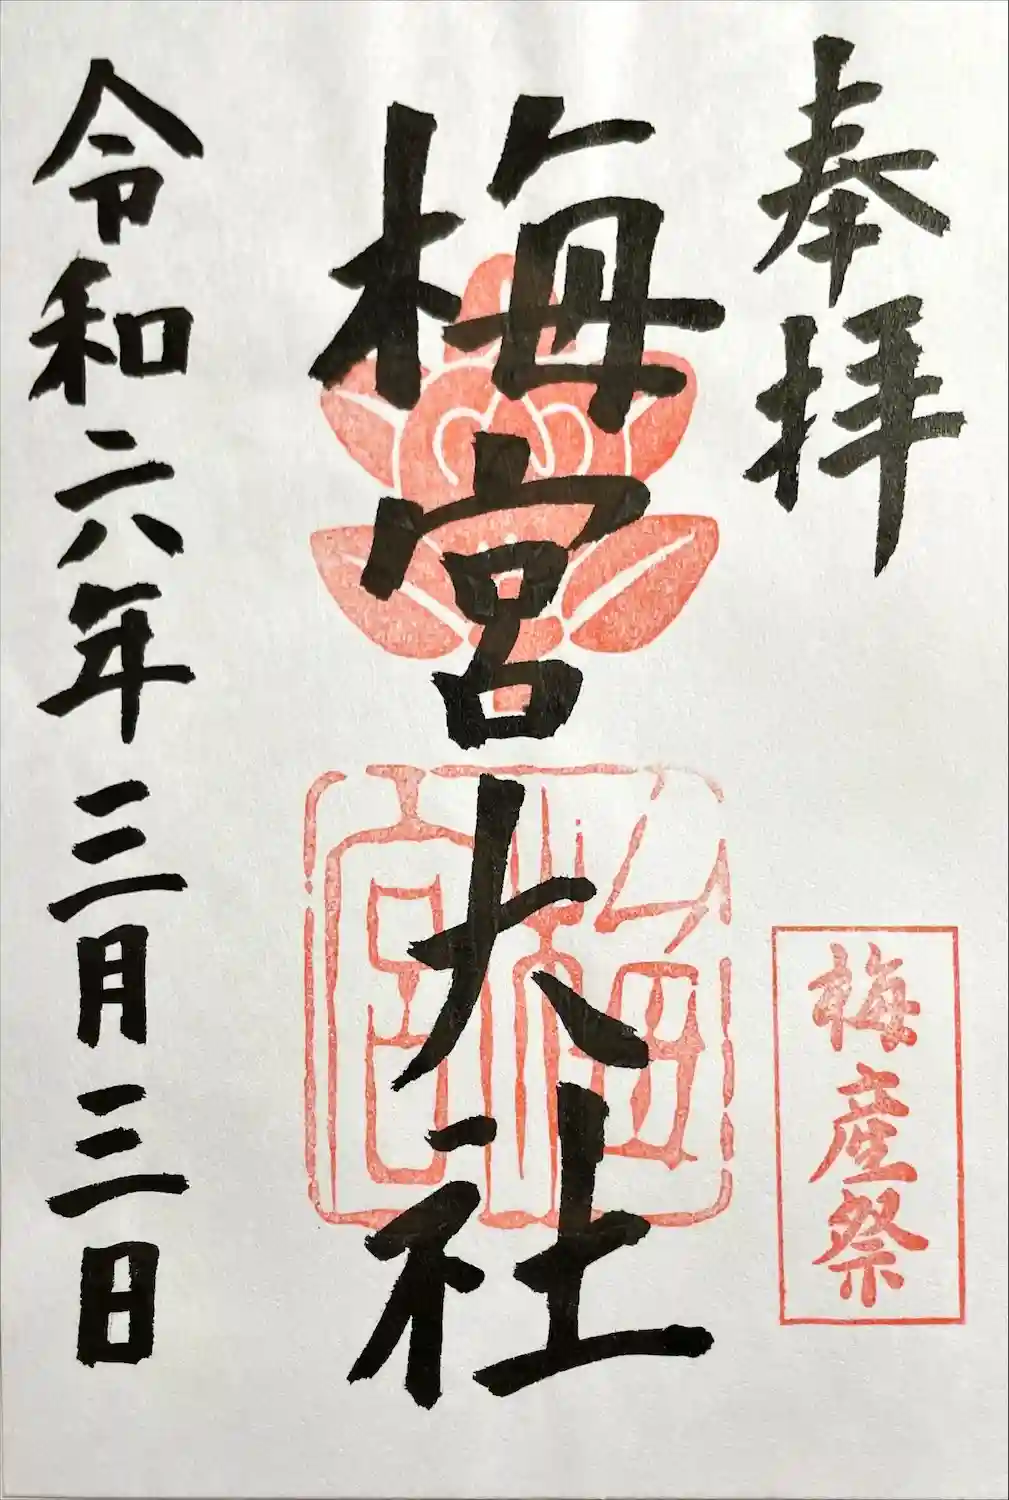 奉拝
梅産祭
梅宮大社
梅宮
令和六年三月三日